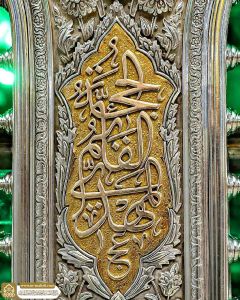 الحجة
القائم
المهدي
عج